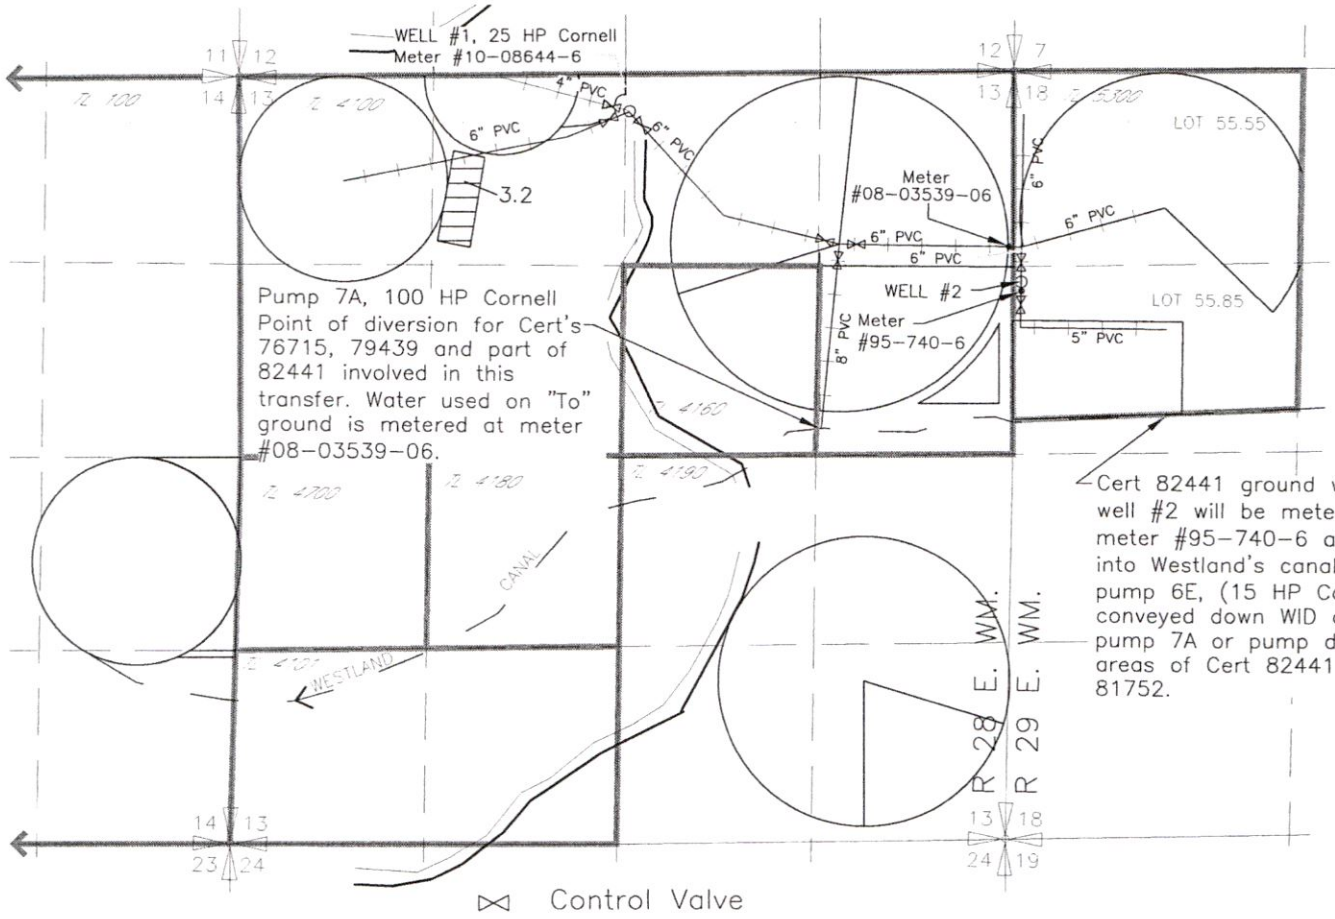 WELL #1, 25 HP Cornell
Meter #10-08644-6
11 12
14 13
12 7
13 18
TL 100
TL 4100
4" PVC
6" PVC
6" PVC
3.2
TL 5300
LOT 55.55
6" PVC
Meter
#08-03539-06
6" PVC
6" PVC
6" PVC
WELL #2
Meter
#95-740-6
8" PVC
LOT 55.85
5" PVC
Pump 7A, 100 HP Cornell
Point of diversion for Cert's
76715, 79439 and part of
82441 involved in this
transfer. Water used on "To"
ground is metered at meter
#08-03539-06.
TL 4160
TL 4700
TL 4180
TL 4190
CANAL
WESTLAND
Cert 82441 ground
well #2 will be
meter #95-740-6
into Westland's
pump 6E, (15 HP
conveyed down WID
pump 7A or pump
areas of Cert 82441
81752.
R 28 E. WM.
R 29 E. WM.
14 13
23 24
13 18
24 19
Control Valve